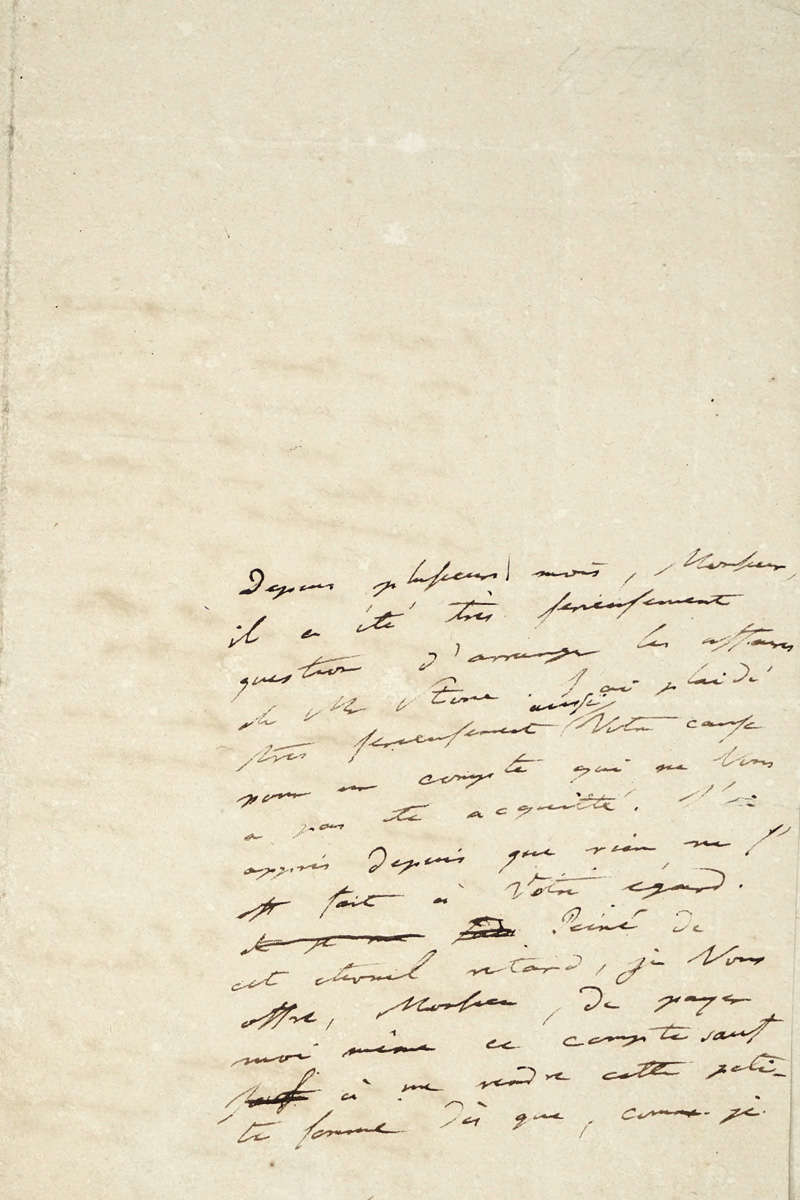 Depuis plusieurs mois, Monsieur,
il a été très serieusement
question d'arranger les affaires
de Mr Stone. J'ai plaidé
aussi
très serieusement Votre cause
pour un compte qui ne Vous
a pas ete acquitté. J'ai
appris depuis que rien ne s'
est fait à Votre égard.
Peiné de
cet eternel retard, je Vous
offre, Monsieur, de payer
moi même ce compte sauf
à me rendre cette peti-
te somme dès que, comme je